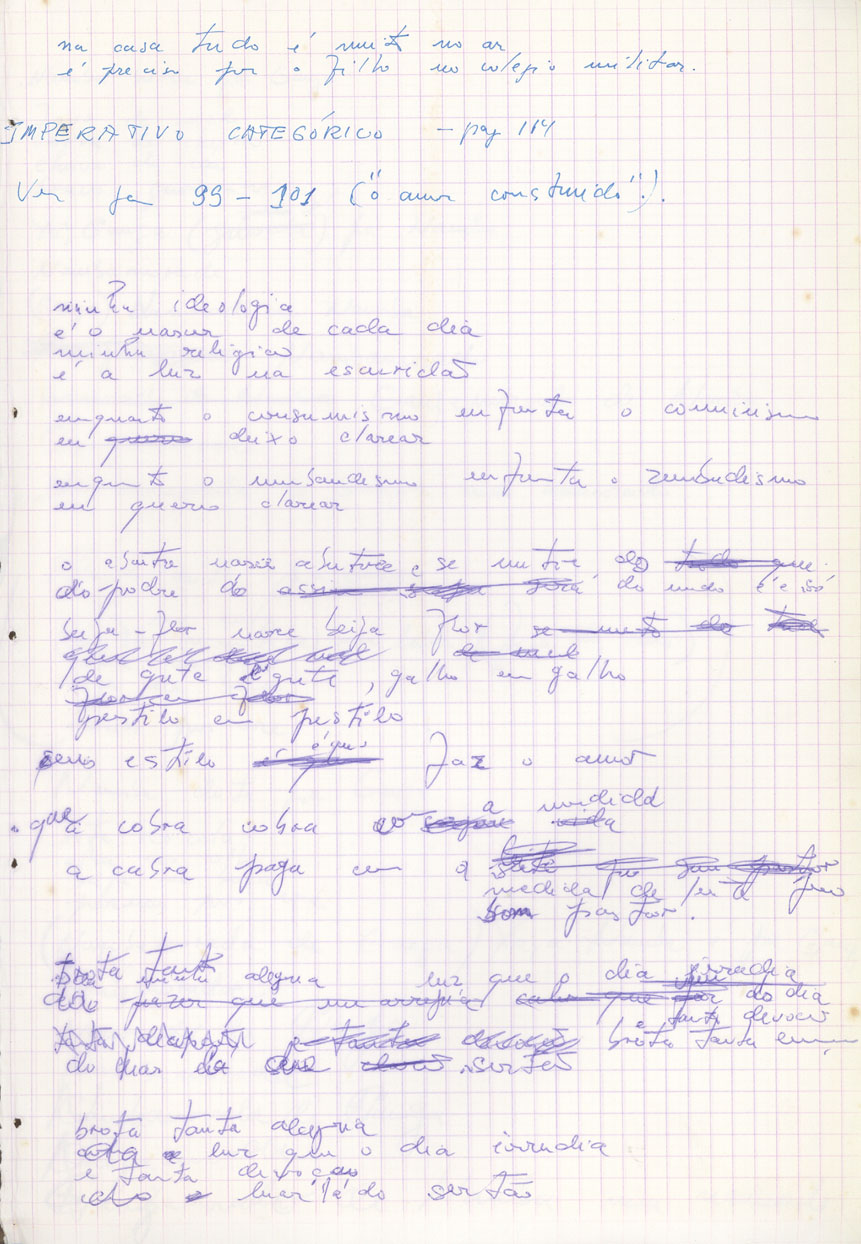 na casa tudo é muito no ar
é preciso por o filho no colégio militar.
IMPERATIVO CATEGÓRICO - pag 114
Ver 99 - 101 ("o amor construido".).
minha ideologia
é o nascer de cada dia
minha religião
é a luz na escuridão
enquanto o consumismo enfrenta o comunismo
eu deixo clarear
enquanto o enfrenta o
eu quero clarear
o abutre nasce abutre e se nutre do
do podre do do mundo é e só
beija-flor nasce beija flor
de greta greta, galho em galho
pestilo em pestilo
seu estilo faz o amor
que a cobra cobra a medida
a cabra paga em
medida de leite
bom pastor.
brota tanta alegria luz que o dia irradia
do dia
e tanta devoção
brota tanta
do luar sertão
brota tanta alegria
luz que o dia irradia
e tanta devoção
luar lá do sertão